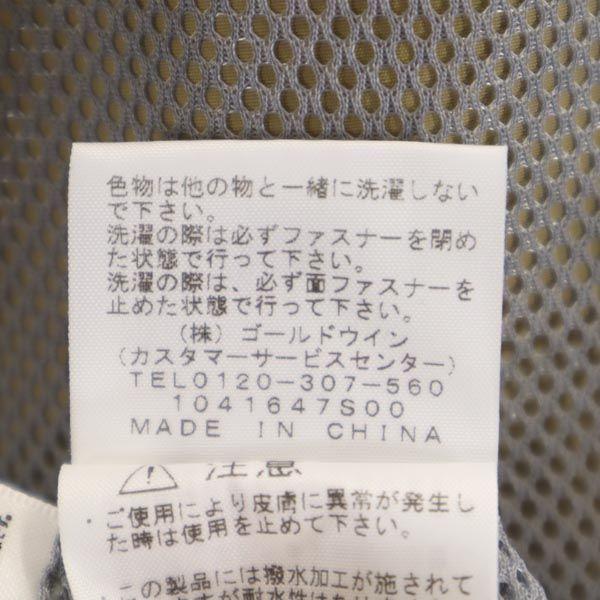 色物は他の物と一緒に洗濯しない
で下さい。
洗濯の際は必ずファスナーを閉め
た状態で行って下さい。
洗濯の際は、必ず面ファスナーを
止めた状態で行って下さい。
(株)ゴールドウイン
(カスタマーサービスセンター)
TEL0120-307-560
1041647S00
MADE IN CHINA
注意
ご使用により皮膚に異常が発生し
た時は使用を止めて下さい。
この製品には撥水加工が施されて